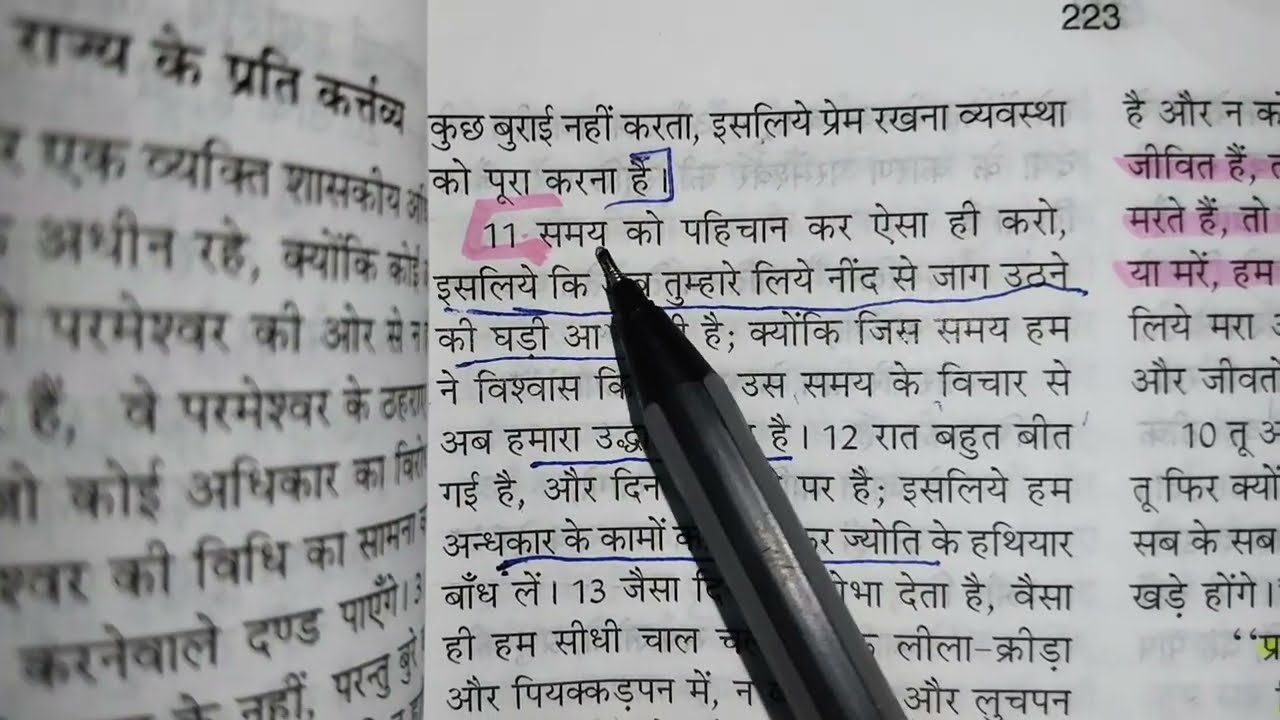 223
राज्य के प्रति कर्त्तव्य
एक व्यक्ति शासकीय
अधीन रहे, क्योंकि कोई
परमेश्वर की ओर से
हैं, वे परमेश्वर के
कोई अधिकार का
की विधि का सामना
करनेवाले दण्ड पाएँगे।
के नहीं, परन्तु बुरे
कुछ बुराई नहीं करता, इसलिये प्रेम रखना व्यवस्था
को पूरा करना है।
11 समय को पहिचान कर ऐसा ही करो,
इसलिये कि तुम्हारे लिये नींद से जाग उठने
की घड़ी आ है; क्योंकि जिस समय हम
ने विश्वास उस समय के विचार से
अब हमारा है। 12 रात बहुत बीत
गई है, और दिन पर है; इसलिये हम
अन्धकार के कामों ज्योति के हथियार
बाँध लें। 13 जैसा देता है, वैसा
ही हम सीधी चाल लीला-क्रीड़ा
और पियक्कड़पन में, और लुचपन
है और न
जीवित हैं,
मरते हैं, तो
या मरें, हम
लिये मरा
और जीवतों
10 तू
तू फिर क्यों
सब के सब
खड़े होंगे।